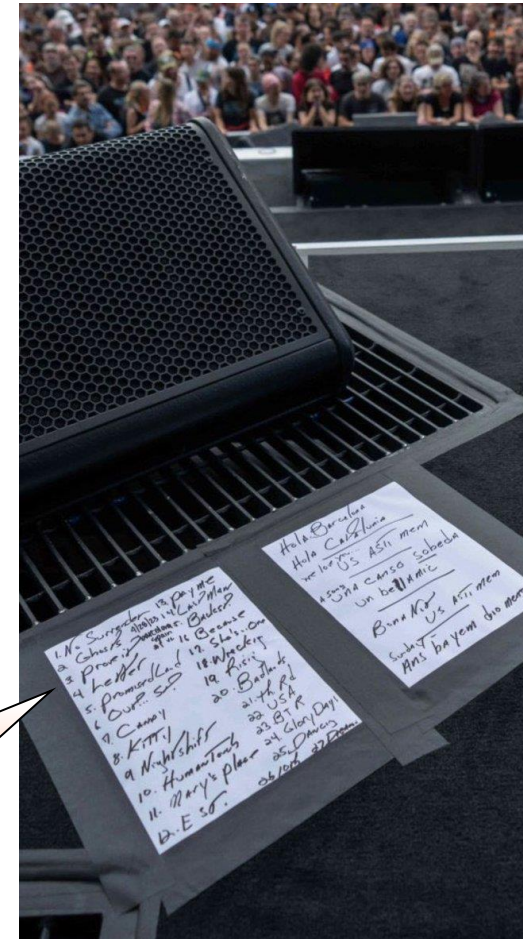 1. No Surrender
2. Ghosts
3. Prove it
4. Letter
5. Promised Land
6. Out.. St?
7. Candy
8. Kitty
9 Nightshift
10. Human Touch
11. Mary's place
12. E ST.
13. Pay me
14. Last Man
15. Backst?
16. Because
17. She's. One
18. Wrecking
19. Rising
20. Badlands
21. th. Rd
22 USA
23. B T R
24 Glory Days
25. Dancing
26 10th
27
Hola Barcelona
Hola Catalunia
we love you...
Us Astimem
A song
Una canso sobeda
un bell Amic
Bona Nit
Us Astimem
Sunday
Ans bayem diomen